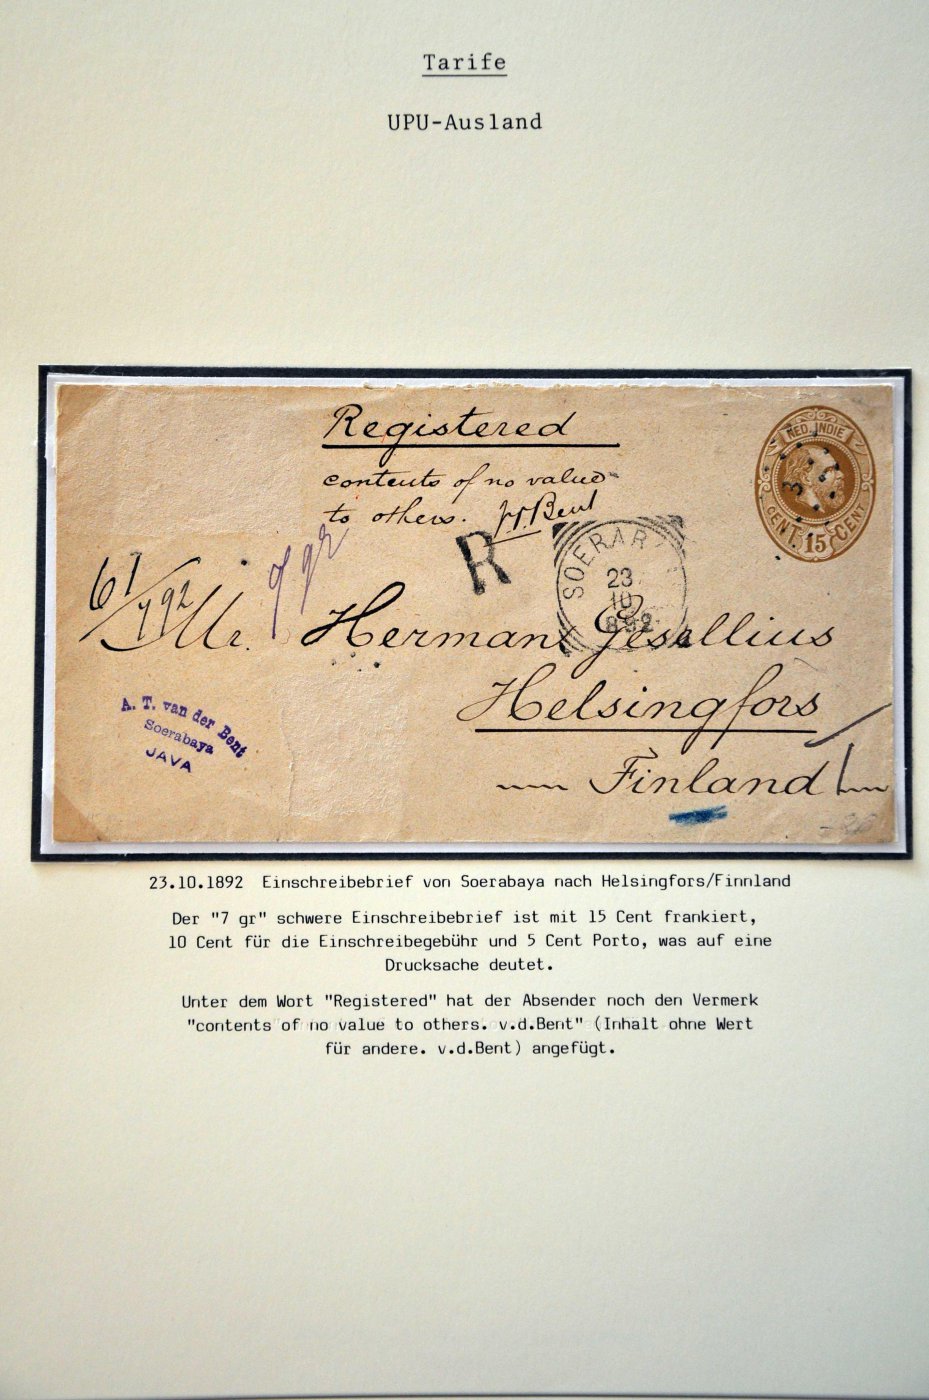 Tarife
UPU-Ausland
Registered
contents of no value
to others. Bent
NED. INDIE
3
CENT. 15 CENT
R
7 gr
61/792
SOERABA
23
10
892
Mr. Herman Gesellius
Helsingfors
Finland
A. T. van der Bent
Soerabaya
JAVA
23.10.1892 Einschreibebrief von Soerabaya nach Helsingfors/Finnland
Der "7 gr" schwere Einschreibebrief ist mit 15 Cent frankiert,
10 Cent für die Einschreibegebühr und 5 Cent Porto, was auf eine
Drucksache deutet.
Unter dem Wort "Registered" hat der Absender noch den Vermerk
"contents of no value to others. v.d.Bent" (Inhalt ohne Wert
für andere. v.d.Bent) angefügt.